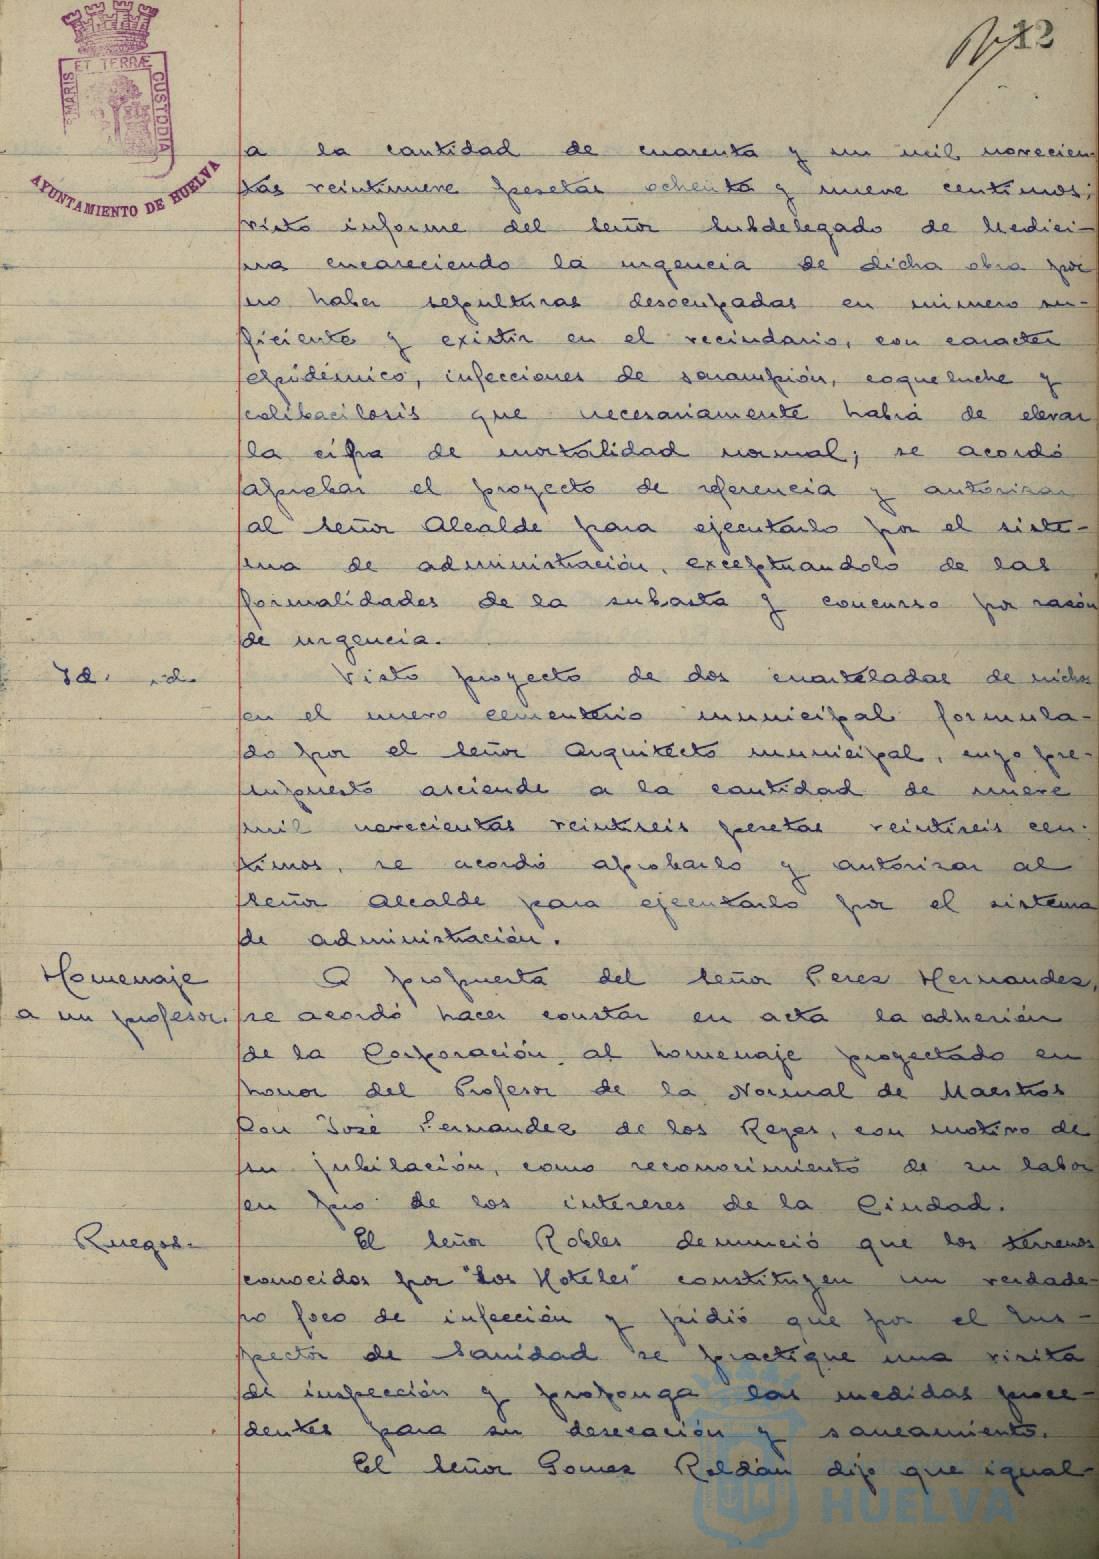 12
MARIS ET TERRÆ CUSTODIA
AYUNTAMIENTO DE HUELVA
a la cantidad de cuarenta y un mil novecien-
tas veintinueve pesetas ochenta y nueve centimos;
visto informe del señor Subdelegado de Medici-
na encareciendo la urgencia de dicha obra por
no haber sepulturas desocupadas en número su-
ficiente y existir en el vecindario, con caracter
epidémico, infecciones de sarampión, coqueluche y
colibacilosis que necesariamente habrá de elevar
la cifra de mortalidad normal; se acordó
aprobar el proyecto de referencia y autorizar
al señor Alcalde para ejecutarlo por el siste-
ma de administración, exceptuandolo de las
formalidades de la subasta y concurso por razón
de urgencia.
Id. id.
Visto proyecto de dos cuarteladas de nichos
en el nuevo cementerio municipal formula-
do por el señor Arquitecto municipal, cuyo pre-
supuesto asciende a la cantidad de nueve
mil novecientas veintiseis pesetas veintiseis cen-
timos, se acordó aprobarlo y autorizar al
señor Alcalde para ejecutarlo por el sistema
de administración.
Homenaje
a un profesor.
A propuesta del señor Perez Hernandez,
se acordó hacer constar en acta la adhesión
de la Corporación al homenaje proyectado en
honor del Profesor de la Normal de Maestros
Don José Fernandez de los Reyes, con motivo de
su jubilación, como reconocimiento de su labor
en pro de los intereses de la Ciudad.
Ruegos.
El señor Robles denunció que los terrenos
conocidos por "Los Hoteles" constituyen un verdade-
ro foco de infección y pidió que por el Ins-
pector de Sanidad se practique una visita
de inspección y proponga las medidas proce-
dentes para su desecación y saneamiento.
El señor Gomez Roldán dijo que igual-
HUELVA